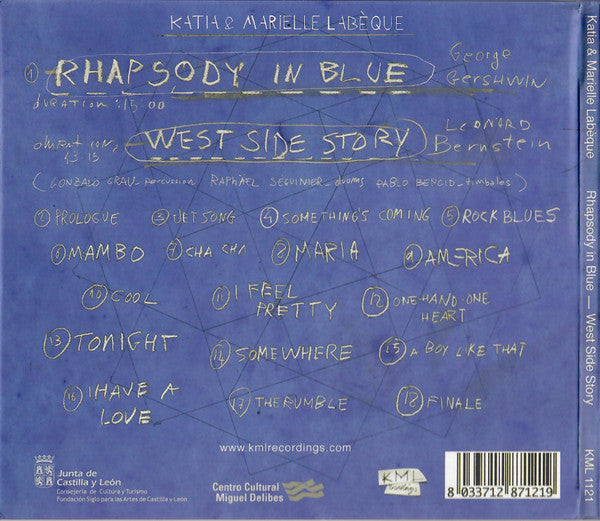 KATIA & MARIELLE LABÈQUE
1 RHAPSODY IN BLUE George Gershwin
duration: 15:00
WEST SIDE STORY Leonard Bernstein
(GONZALO GRAU_percussion RAPHAËL SÉGUINIER_drums PABLO BENCID_timbales)
2 PROLOGUE 3 JET SONG 4 SOMETHING'S COMING 5 ROCK BLUES
6 MAMBO 7 CHA CHA 8 MARIA 9 AMERICA
10 COOL 11 I FEEL PRETTY 12 ONE-HAND-ONE HEART
13 TONIGHT 14 SOMEWHERE 15 A BOY LIKE THAT
16 I HAVE A LOVE 17 THE RUMBLE 18 FINALE
www.kmlrecordings.com
Junta de
Castilla y León
Consejería de Cultura y Turismo
Fundación Siglo para las Artes de Castilla y León
Centro Cultural
Miguel Delibes
KML
recordings
8 033712 871219
Katia & Marielle Labèque Rhapsody in Blue — West Side Story KML 1121